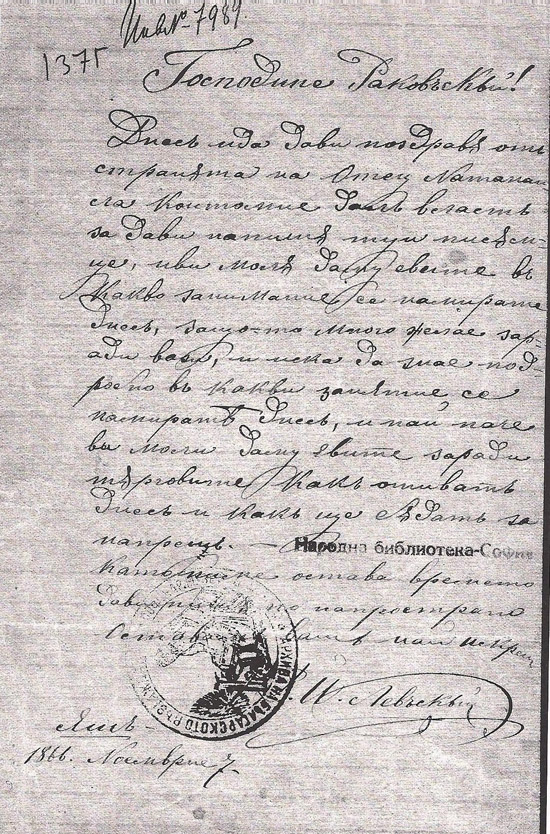 Инв № 7989.
137г
Господине Раковъскый!
Днесь ида дави поздравѫ отъ
странѫта на Отец Натанаи
ла контомие далъ власть
за дави напишѫ туи писѫм-
це, иви молѫ даму евите въ
Какво занимание се намирате
днесь, защо-то много желае зар-
ади вази, и иска да знае под-
робно въ какви занятие се
намиратѣ днесь, и най паче
вы моли даму явите заради
тѫрговите какъ отиватъ
днесь и какъ ще бѫдатъ за
напрешъ. —
Народна библиотека-София
като мине остава времето
по напространо
Оставам вашъ най искрен
Левъскый
Яшъ
1866. Ноемврие 7.